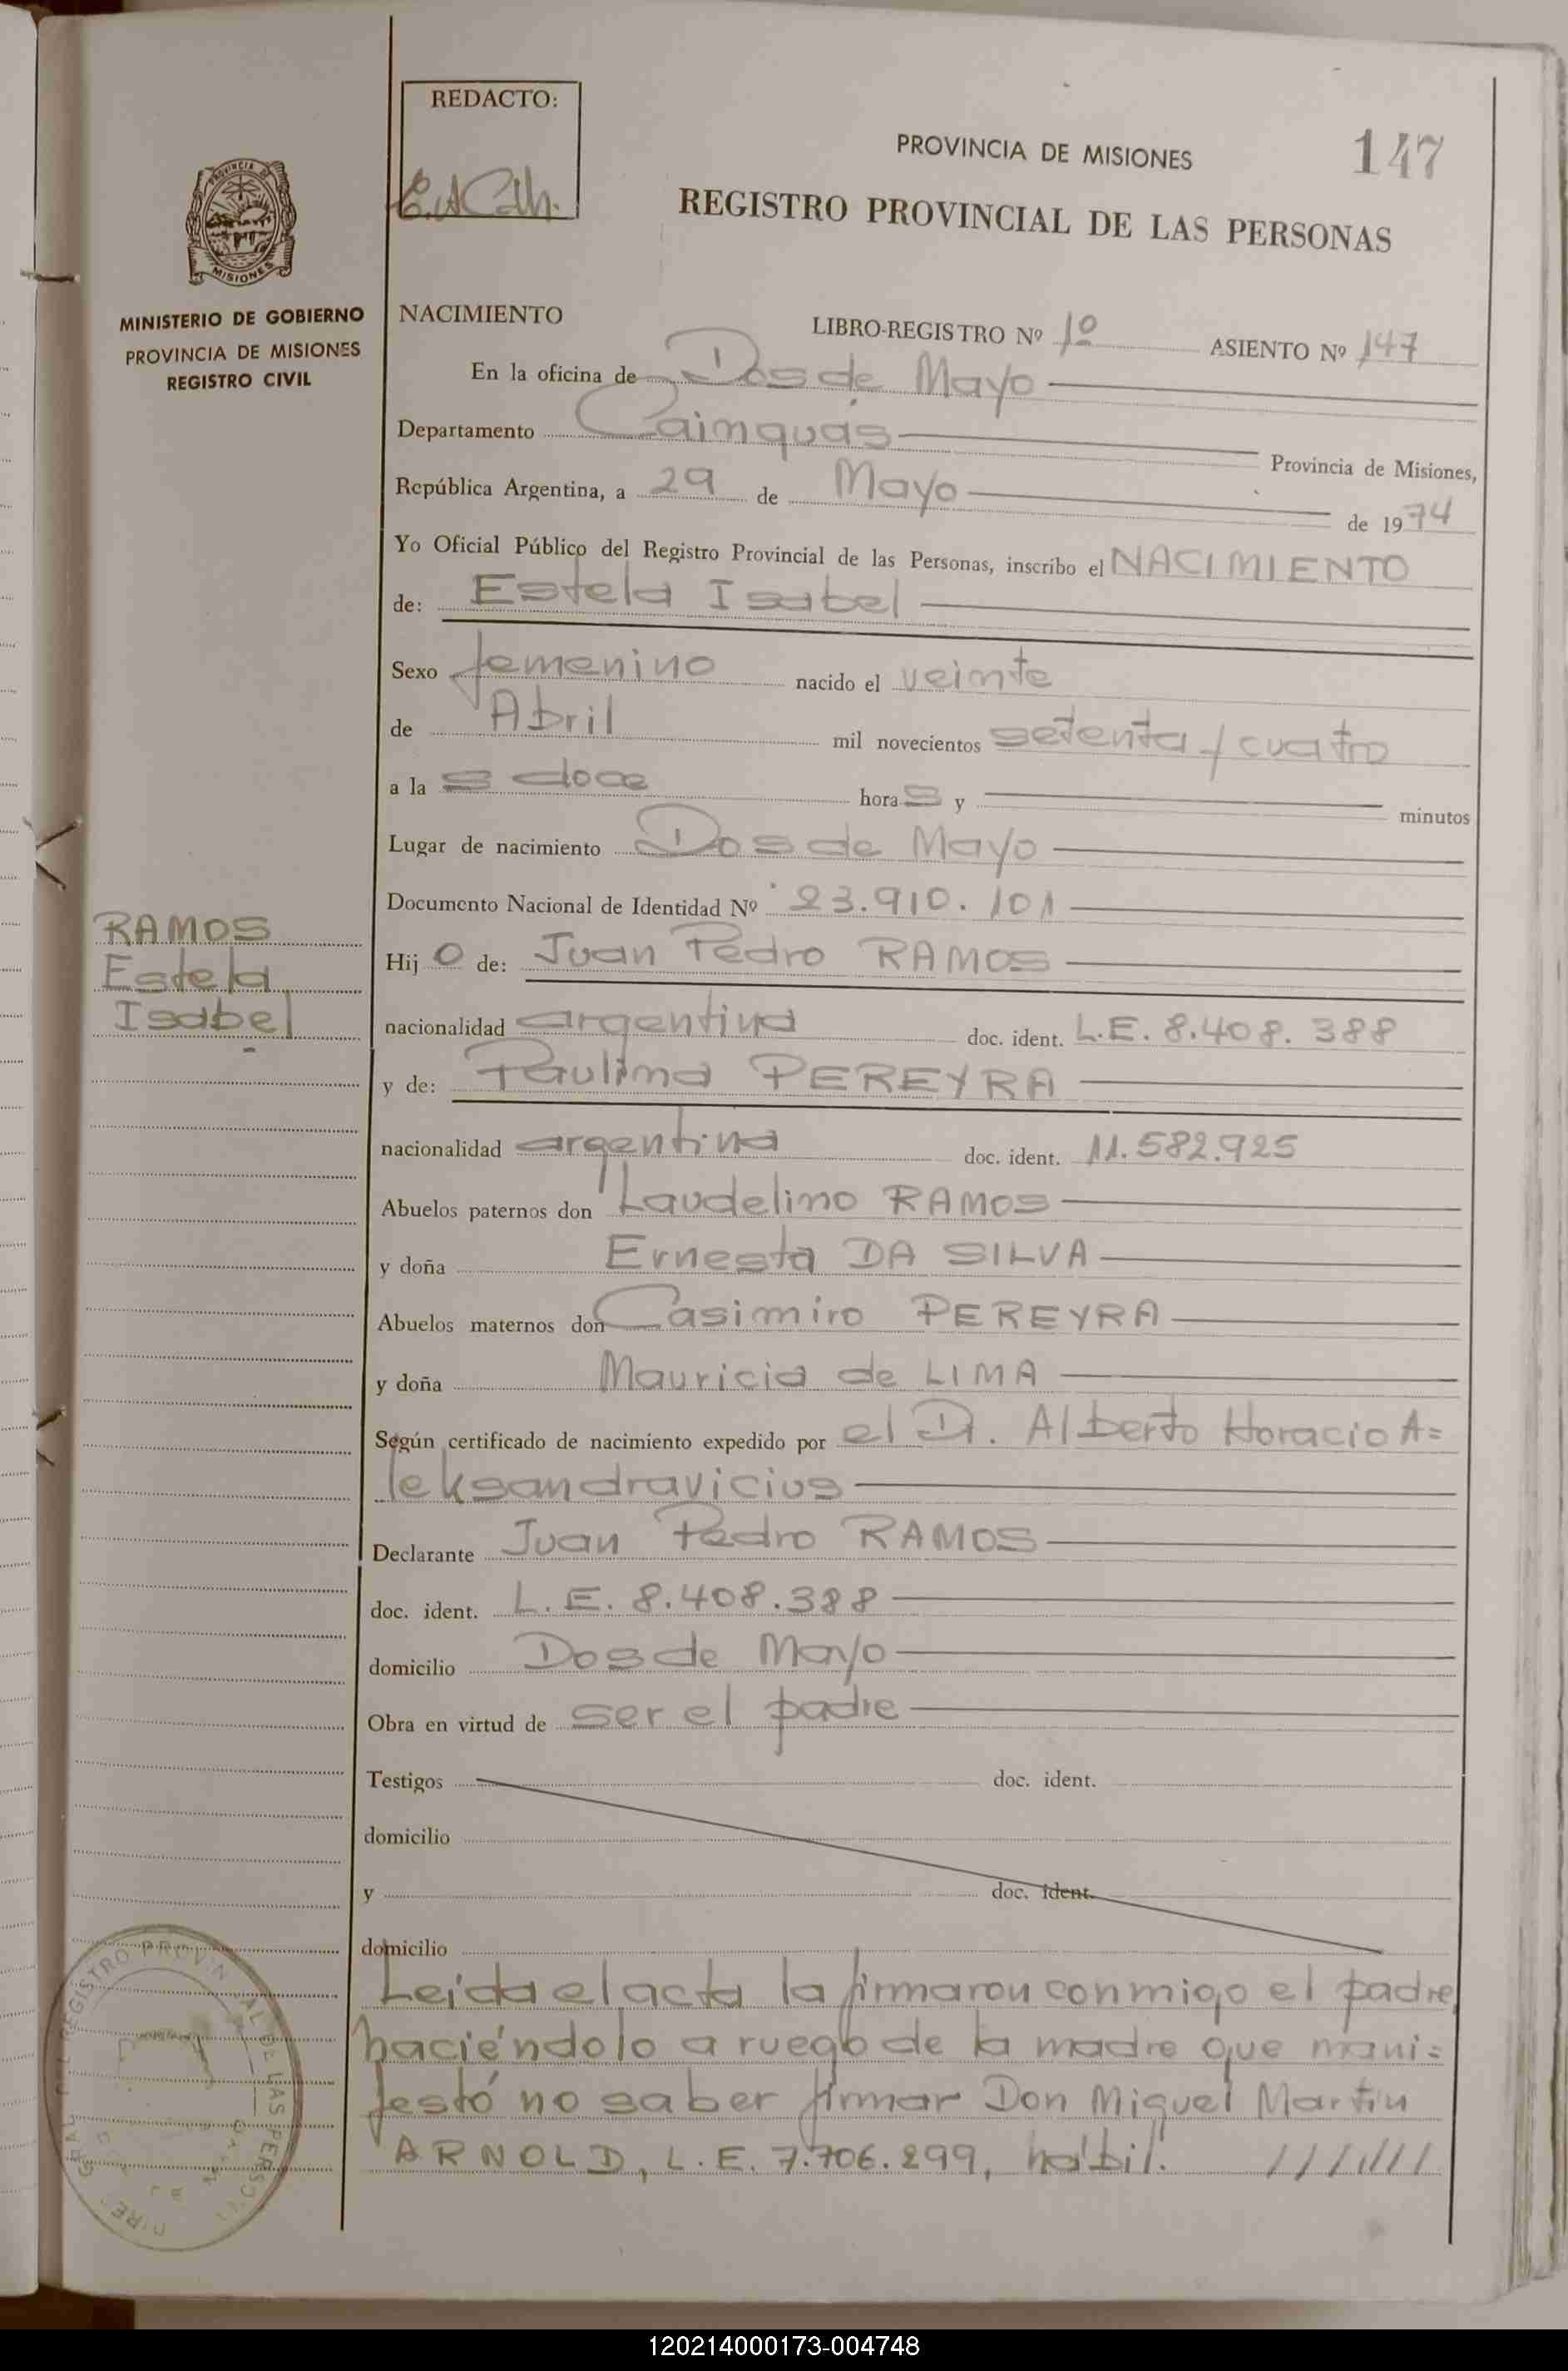 REDACTO:
PROVINCIA DE MISIONES
147
REGISTRO PROVINCIAL DE LAS PERSONAS
PROVINCIA DE
MISIONES
MINISTERIO DE GOBIERNO
PROVINCIA DE MISIONES
REGISTRO CIVIL
NACIMIENTO LIBRO-REGISTRO Nº 1º ASIENTO Nº 147
En la oficina de Dos de Mayo
Departamento Cainguás Provincia de Misiones,
República Argentina, a 29 de Mayo de 1974
Yo Oficial Público del Registro Provincial de las Personas, inscribo el NACIMIENTO
de: Estela Isabel
Sexo femenino nacido el veinte
de Abril mil novecientos setenta y cuatro
a la s doce hora s y minutos
Lugar de nacimiento Dos de Mayo
Documento Nacional de Identidad Nº 23.910.101
RAMOS
Estela
Isabel
Hij o de: Juan Pedro RAMOS
nacionalidad argentina doc. ident. L.E. 8.408.388
y de: Paulina PEREYRA
nacionalidad argentina doc. ident. 11.582.925
Abuelos paternos don Laudelino RAMOS
y doña Ernesta DA SILVA
Abuelos maternos don Casimiro PEREYRA
y doña Mauricia de LIMA
Según certificado de nacimiento expedido por el Dr. Alberto Horacio A=
leksandravicius
Declarante Juan Pedro RAMOS
doc. ident. L.E. 8.408.388
domicilio Dos de Mayo
Obra en virtud de ser el padre
Testigos doc. ident.
domicilio
y doc. ident.
domicilio
Leída el acta la firmaron conmigo el padre,
haciéndolo a ruego de la madre que mani=
festó no saber firmar Don Miguel Martin
ARNOLD, L.E. 7.706.299, hábil. ///////
REGISTRO PROVINCIAL DE LAS PERSONAS
120214000173-004748